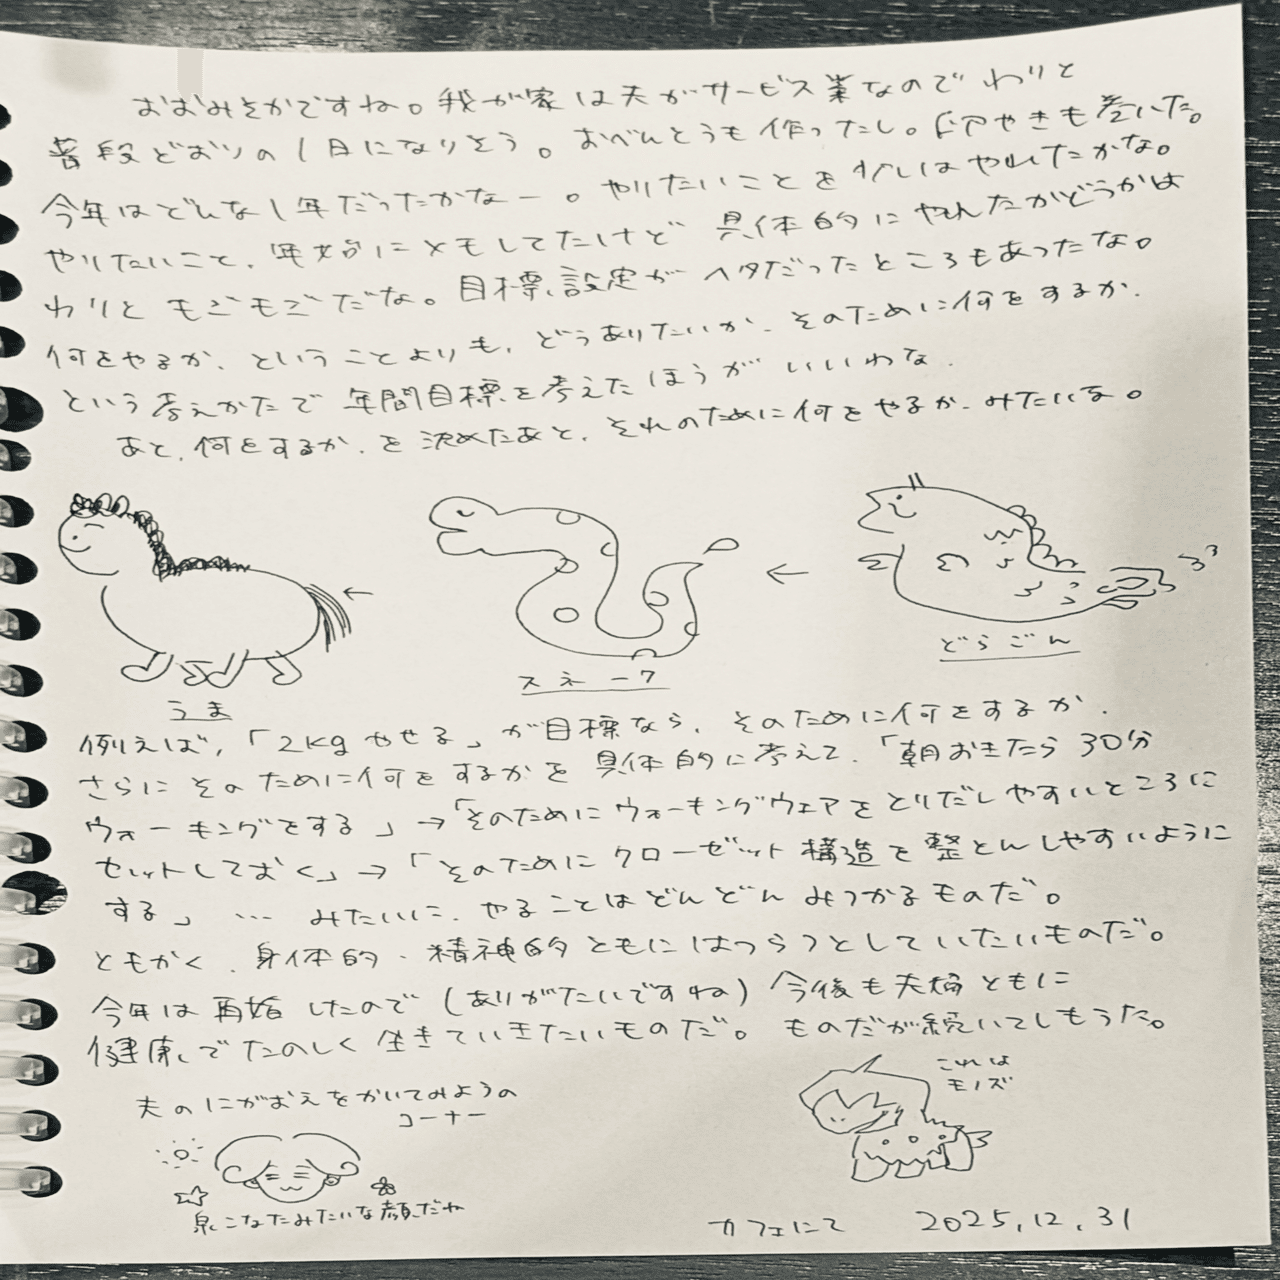 おおみそかですね。我が家は夫がサービス業なのでわりと
普段どおりの1日になりそう。おべんとうも作ったし。ドアやきも巻いた。
今年はどんな1年だったかなー。やりたいことを少しはやれたかな。
やりたいこと、年始にメモしてたけど具体的にやれたかどうかは
わりとモゴモゴだな。目標設定がヘタだったところもあったな。
何をやるか、ということよりも、どうありたいか、そのために何をするか、
という考えかたで年間目標を考えたほうがいいわな。
あと、何をするか、を決めたあと、それのために何をやるか、みたいな。
うま
←
スネーク
←
どらごん
例えば、「2kgやせる」が目標なら、そのために何をするか、
さらにそのために何をするかを具体的に考えて、「朝おきたら30分
ウォーキングをする」→「そのためにウォーキングウェアをとりだしやすいところに
セットしておく」→「そのためにクローゼット構造を整とんしやすいように
する」… みたいに、やることはどんどんみつかるものだ。
ともかく、身体的・精神的ともにはつらつとしていたいものだ。
今年は再婚したので(ありがたいですね)今後も夫婦ともに
健康でたのしく生きていきたいものだ。ものだが続いてしもうた。
夫のにがおえをかいてみようの
コーナー
泉こなたみたいな顔だね
これは
モノズ
カフェにて 2025.12.31